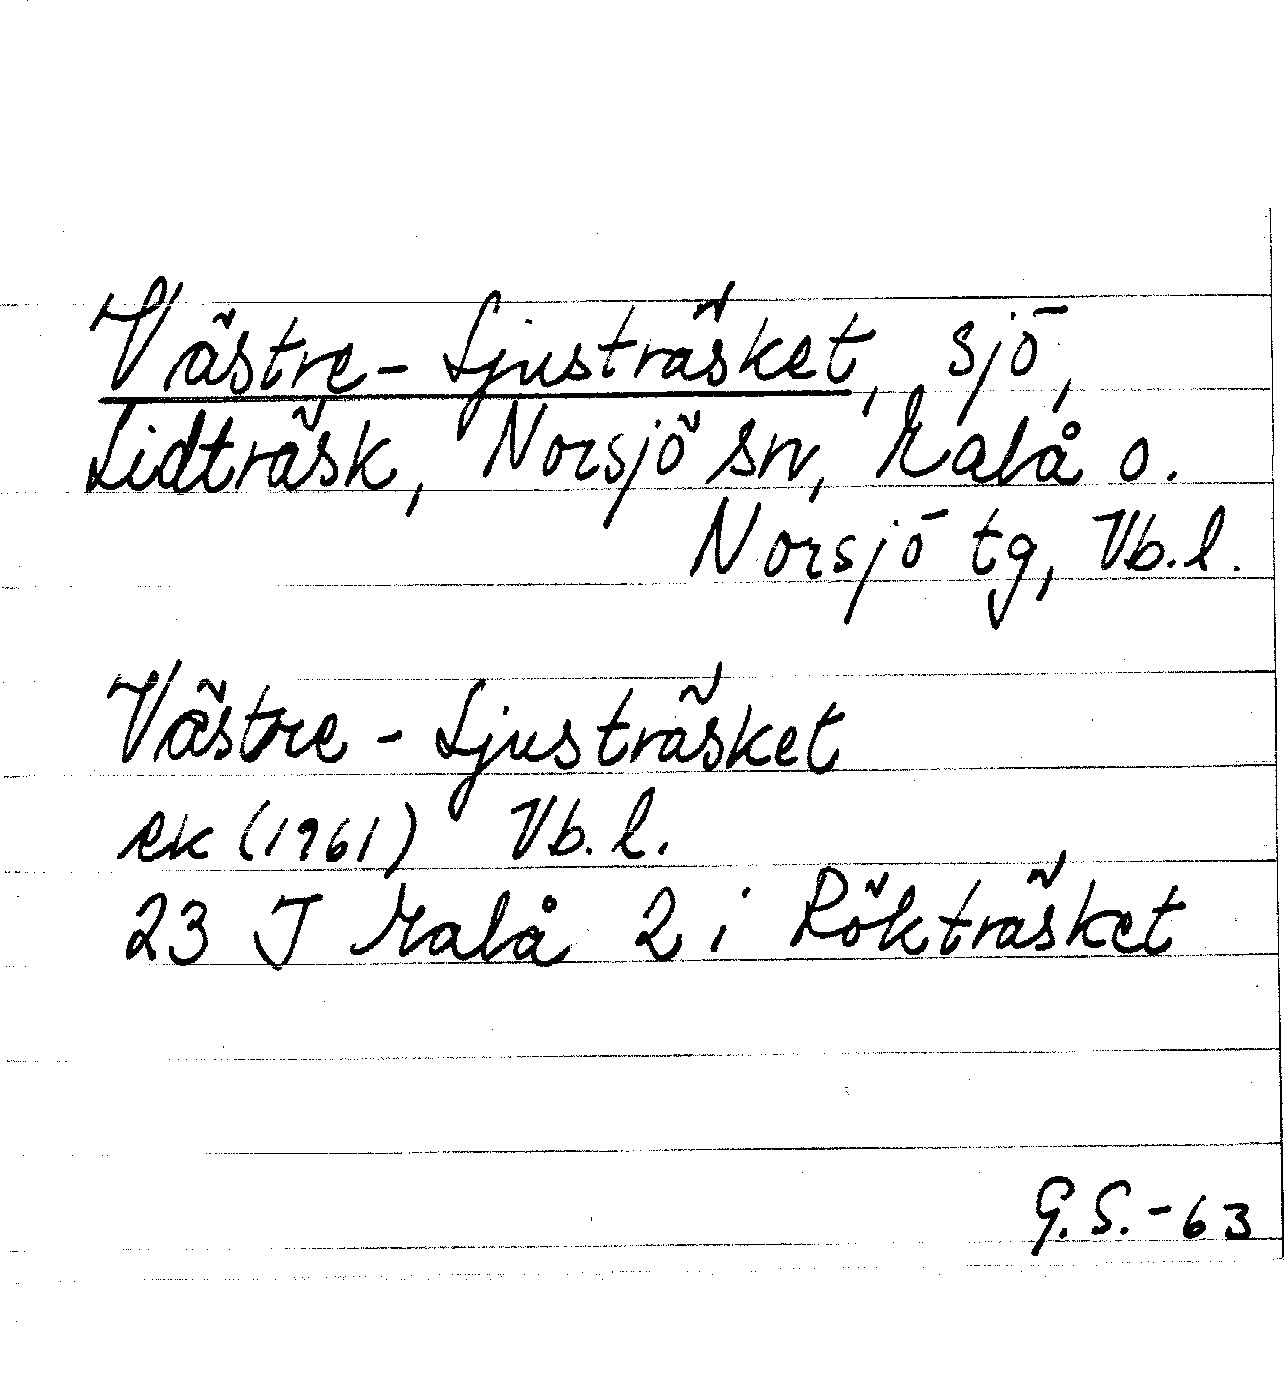 Västre-Ljusträsket, sjö,
Lidträsk, Norsjö sn, Malå o.
Norsjö tg, Vb.l.
Västre-Ljusträsket
ek (1961) Vb.l.
23 J Malå 2 i Rökträsket
G.S.-63